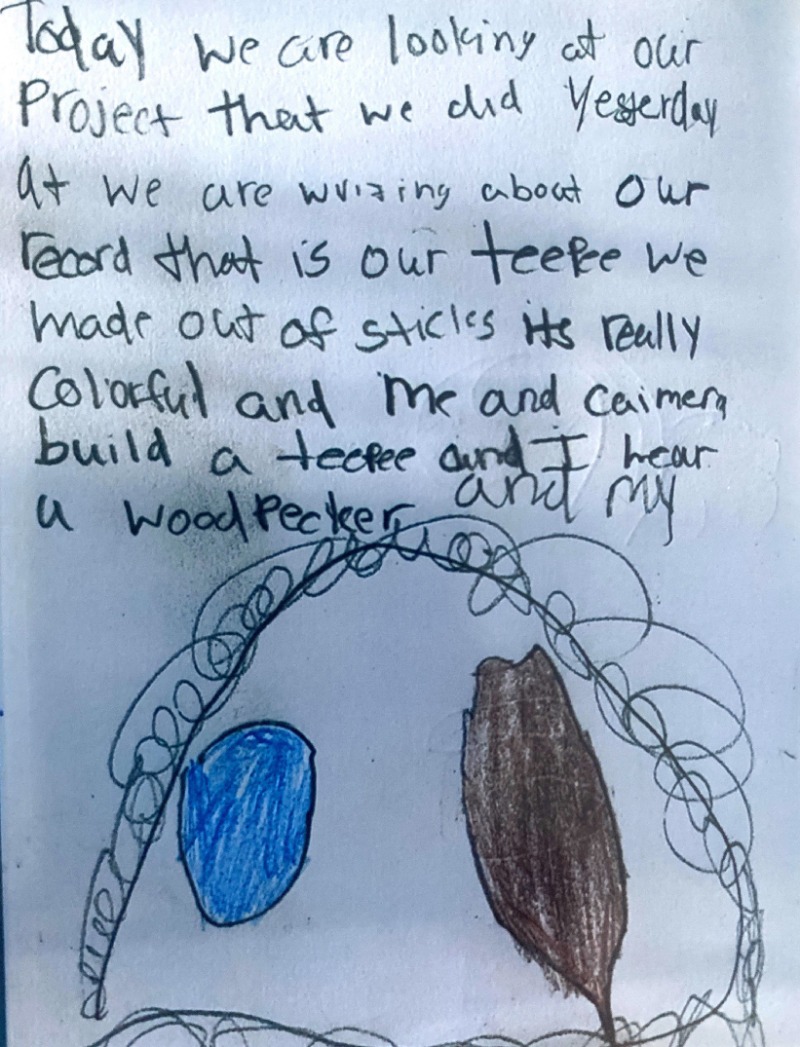 Today we are looking at our
Project that we did Yesterday
at we are wrizing about our
record that is our teepee we
made out of sticks its really
Colorful and me and Caimera
build a teepee and I hear
a woodpecker and my